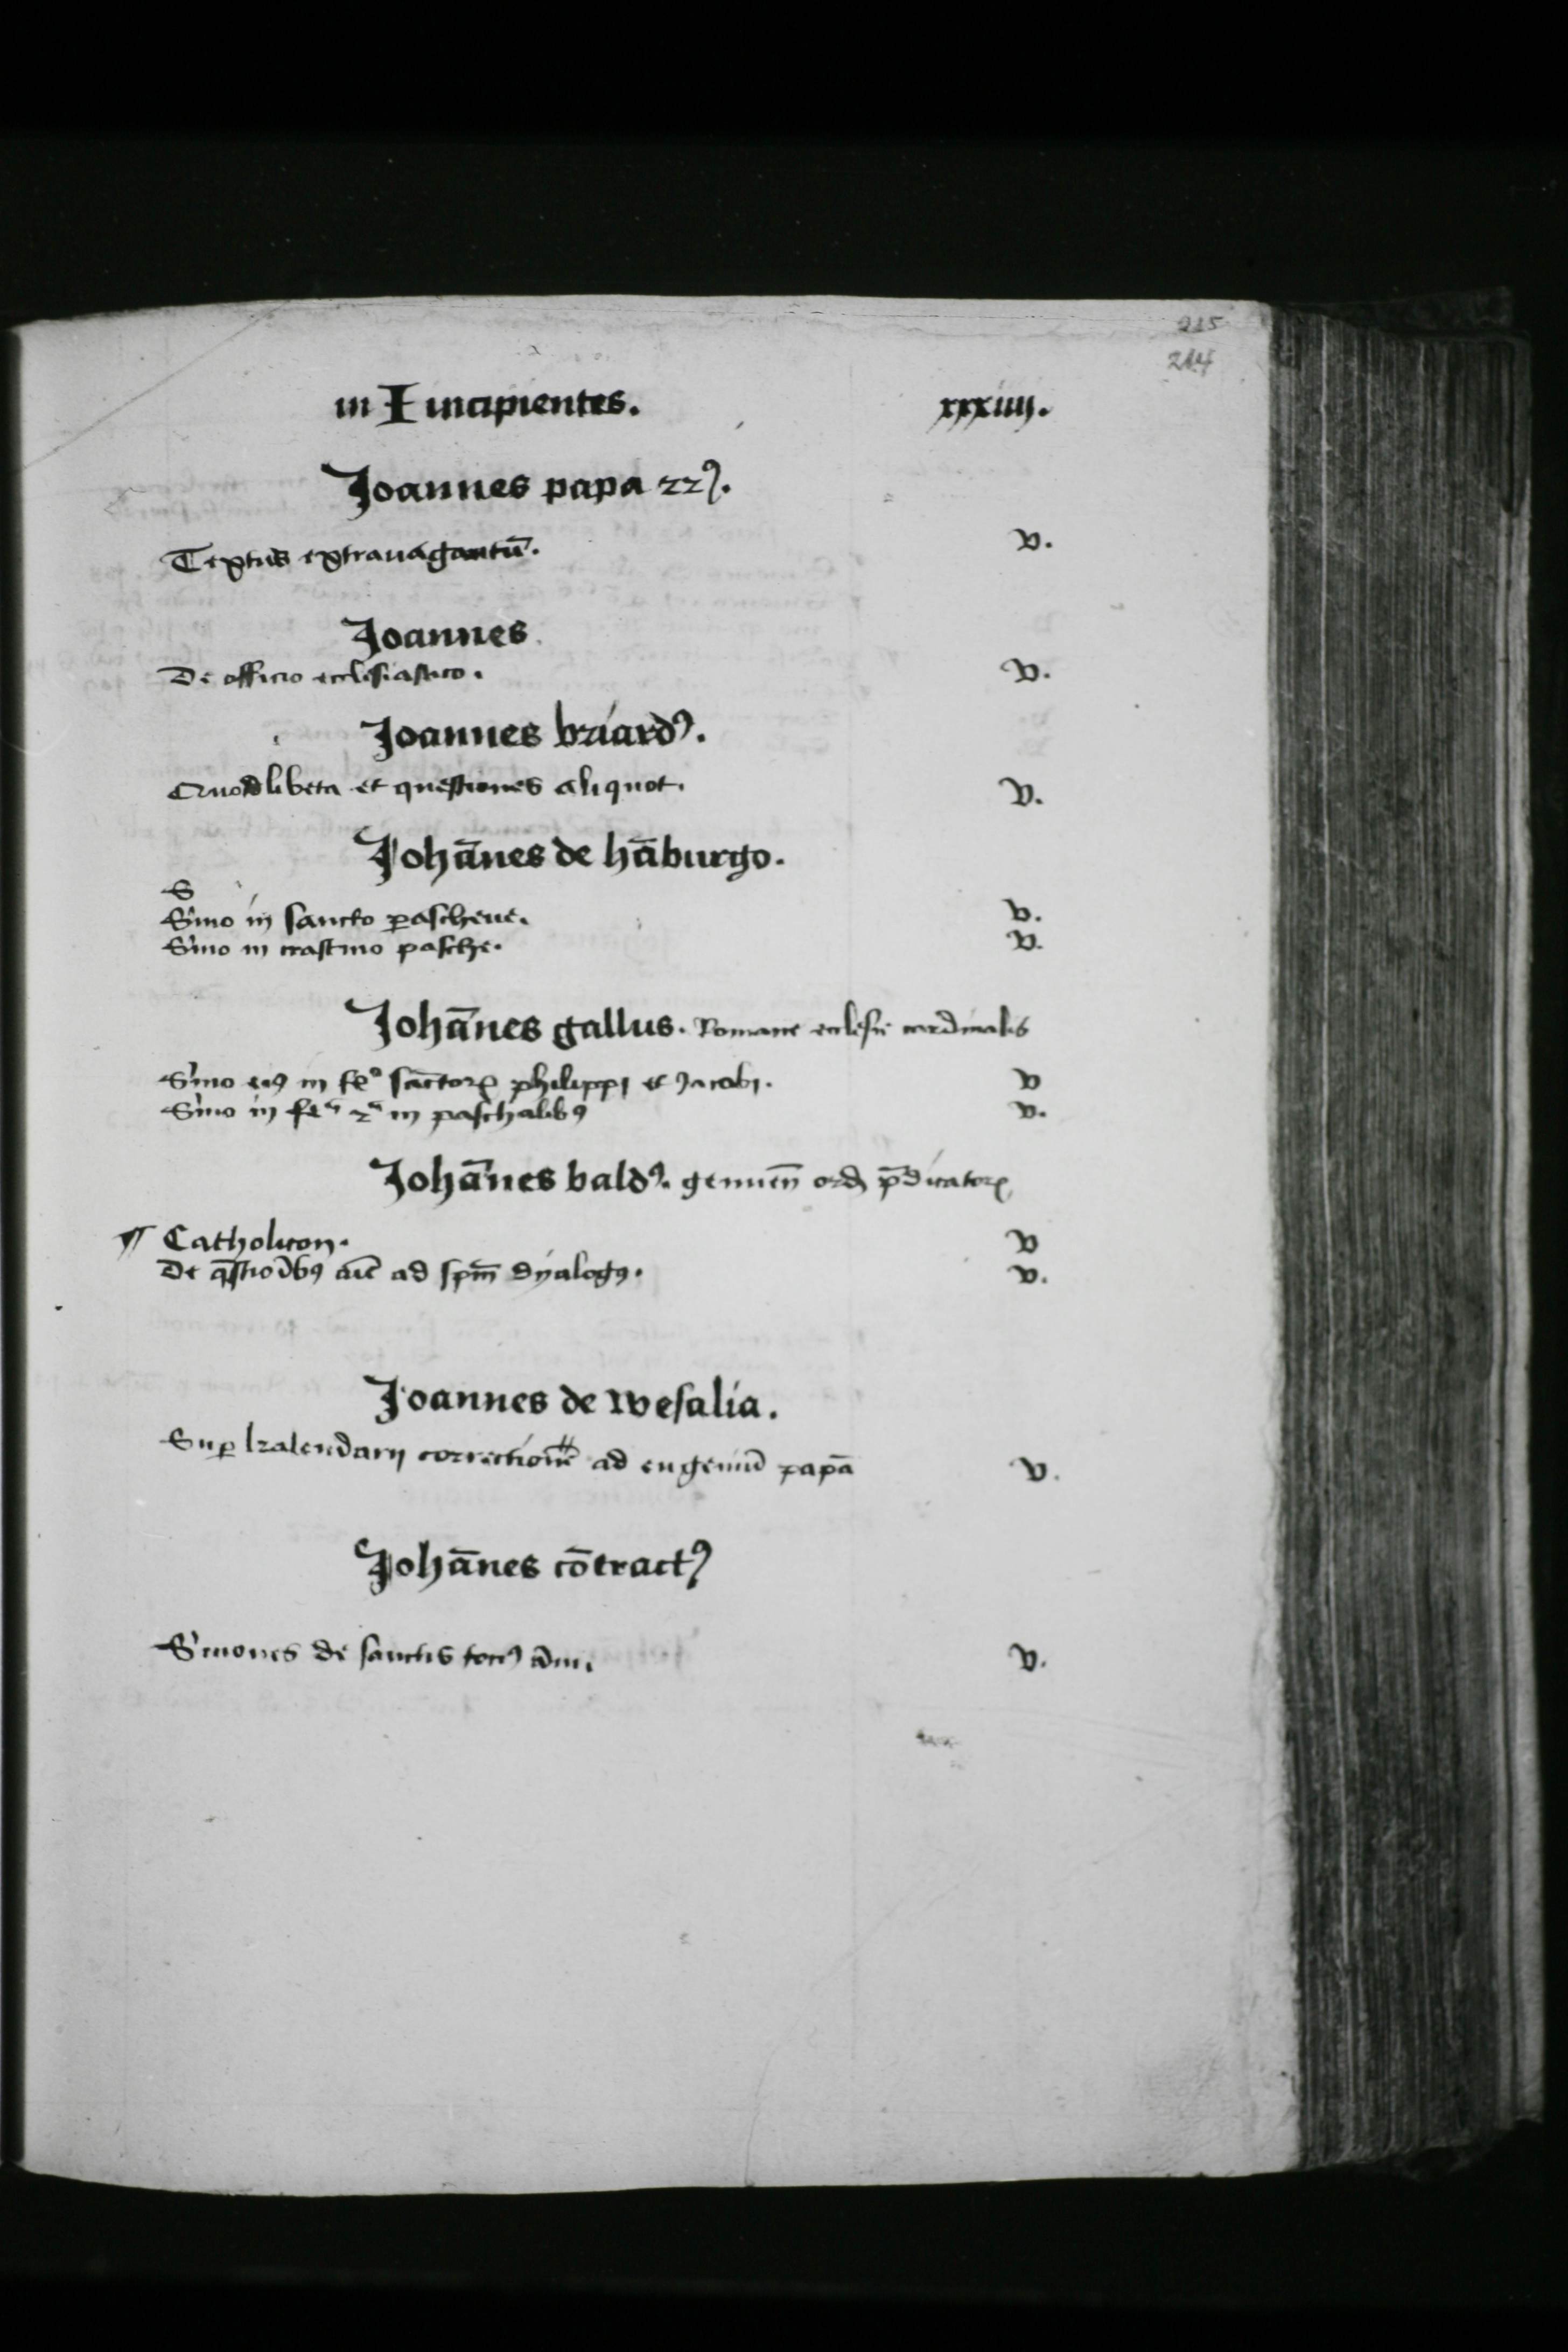 215
214
in I incipientes. xxxiiij.
Joannes papa 22⁹.
Textus extrauagantū. v.
Joannes
De officio ecclesiastico. v.
Joannes briard⁹.
Quodlibeta et questiones aliquot. v.
Johānes de hāburgo.
S
S'mo in sancto pascheue. v.
S'mo in crastino pasche. v.
Johānes gallus. Romane ecclesie cardinalis
S'mo ei⁹ in feº sāctorꝝ philippi et Jacobi. v
S'mo in feª 2ª in paschalib⁹ v.
Johānes bald⁹. genuēn ord p̄dicatorꝝ
Catholicon. v
De q̄stioībꝰ aīe ad sp̄m dyalog⁹. v.
Joannes de wesalia.
Suꝑ kalendarij correctionē ad eugeniū papā v.
Johānes cōtract⁹
S'mones de sanctis toci⁹ āni. v.